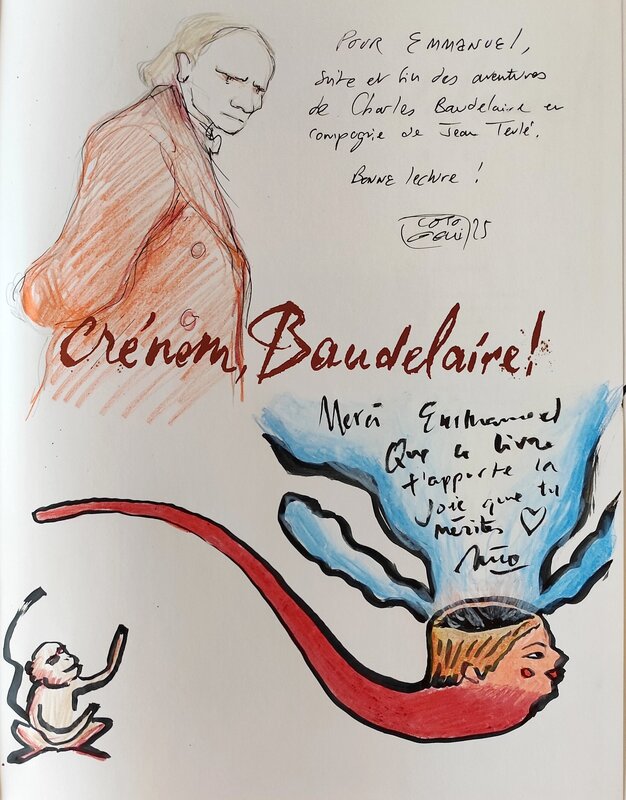 POUR EMMANUEL,
suite et fin des aventures
de Charles Baudelaire en
compagnie de Jean Teulé.
BONNE lecture !
25
Crénom, Baudelaire!
Merci Emmanuel
Que ce livre
t'apporte la
joie que tu
mérites ♡